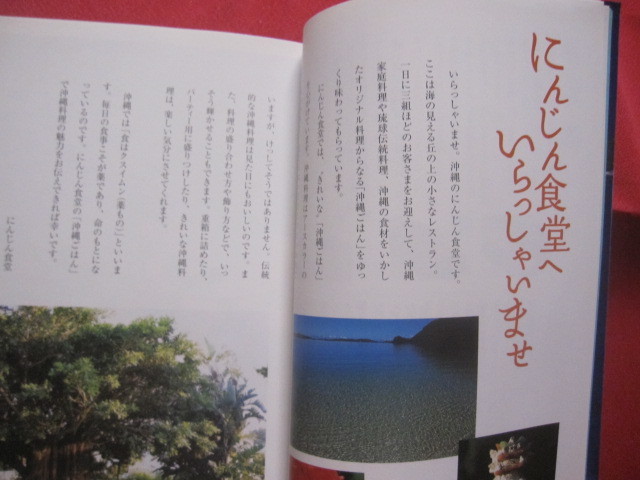 にんじん食堂へ
いらっしゃいませ
いらっしゃいませ。沖縄のにんじん食堂です。
ここは海の見える丘の上の小さなレストラン。
一日に三組ほどのお客さまをお迎えして、沖縄
家庭料理や琉球伝統料理、沖縄の食材をいかし
たオリジナル料理からなる「沖縄ごはん」をゆっ
くり味わってもらっています。
にんじん食堂では、「きれいな」「沖縄ごはん」
いますが、けっしてそうではありません。伝統
的な沖縄料理は見た目にもおいしいのです。ま
た、料理の盛り合わせ方や飾り方などで、いっ
そう輝かせることもできます。重箱に詰めたり、
パーティー用に盛りつけしたり、きれいな沖縄料
理は、楽しい気分にさせてくれます。
沖縄では「食はクスイムン（薬もの）」といいま
す。毎日の食事こそが薬であり、命のもとにな
っているのです。にんじん食堂の「沖縄ごはん」
で沖縄料理の魅力をお伝えできれば幸いです。
にんじん食堂